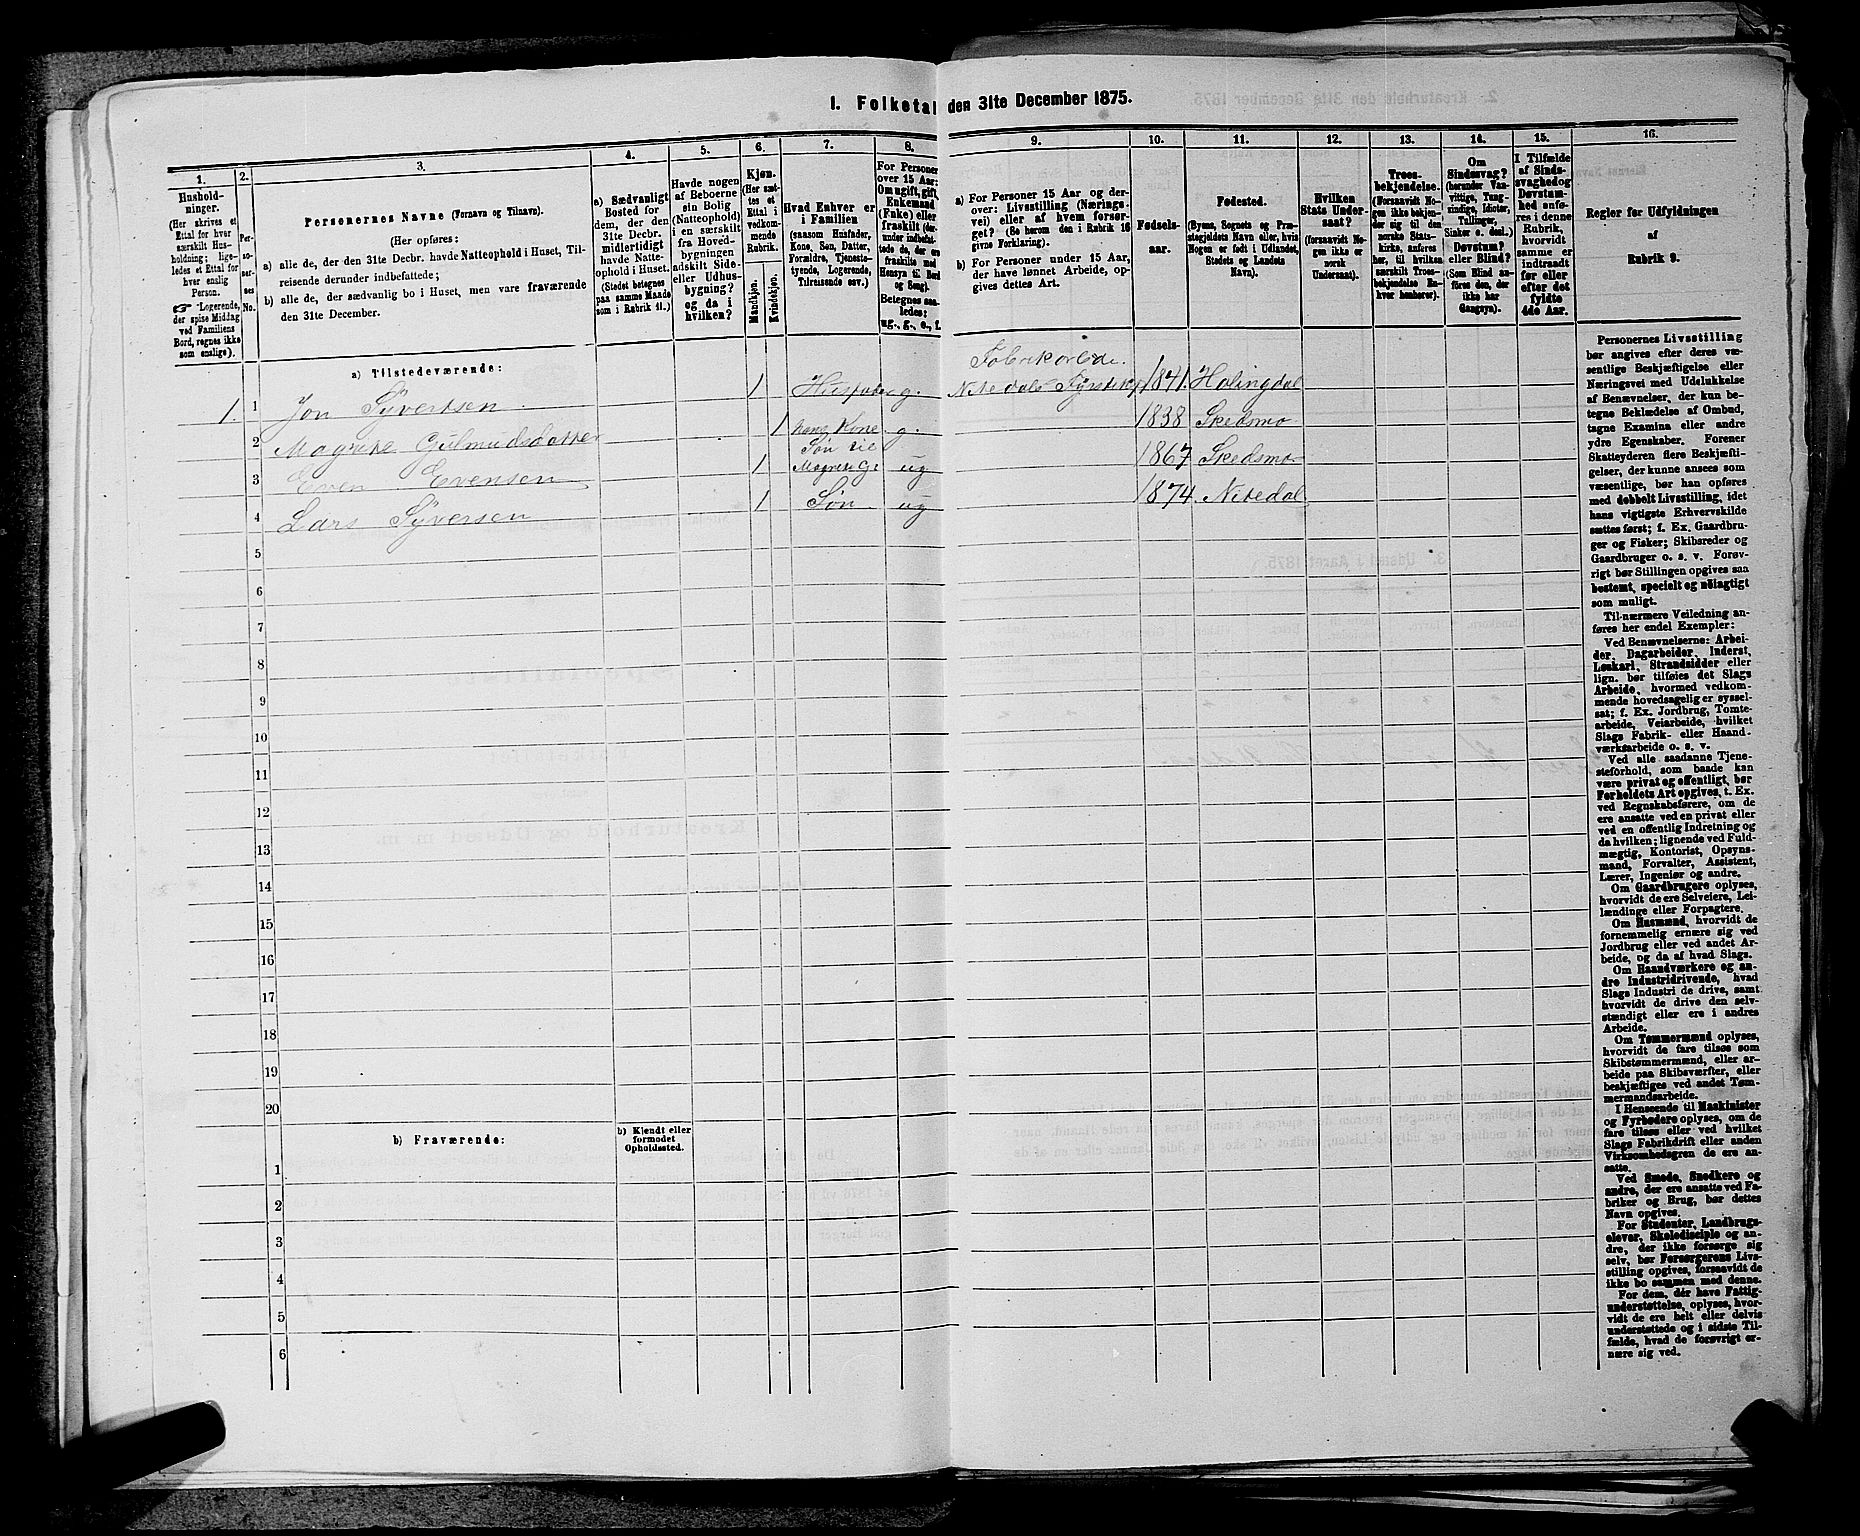 1. Folketal den 31te December 1875.
1. 2. 3. 4. 5. 6. 7. 8. 9. 10. 11. 12. 13. 14. 15. 16.
Hushold-
ninger.
(Her skrives et
Ettal for hver
særskilt Hus-
holdning; lige-
ledes et Ettal for
hver enslig
Person.
☞ Logerende,
der spise Middag
ved Familiens
Bord, regnes ikke
som enslige).
Per-
so-
ner-
nes
No.
Personernes Navne (Fornavn og Tilnavn).
(Her opføres:
a) alle de, der den 31te Decbr. havde Natteophold i Huset, Til-
reisende derunder indbefattede;
b) alle de, der sædvanlig bo i Huset, men vare fraværende
den 31te December.
a) Sædvanligt
Bosted for
dem, der den
31te Decbr.
midlertidigt
havde Natte-
ophold i Huset.
(Stedet betegnes
paa samme Maade
som i Rubrik 11.)
Havde nogen
af Beboerne
sin Bolig
(Natteophold)
i en særskilt
fra Hoved-
bygningen
adskilt Side-
eller Udhus-
bygning?
og da i
hvilken?
Kjøn.
(Her sæt-
tes et
Ettal i
vedkom-
mende
Rubrik.
Mandkjøn.
Kvindekjøn.
Hvad Enhver er
i Familien
(saasom Husfader,
Kone, Søn, Datter,
Forældre, Tjeneste-
tyende, Logerende,
Tilreisende osv.)
For Personer
over 15 Aar:
Om ugift, gift,
Enkemand
(Enke) eller
fraskilt (der-
under indbefat-
tede de, der ere
fraskilte med
Hensyn til Bord
og Seng).
Betegnes saa-
ledes:
ug., g., e., f.
a) For Personer 15 Aar og der-
over: Livsstilling (Nærings-
vei) eller af hvem forsør-
get? (Se herom den i Rubrik 16
givne Forklaring).
b) For Personer under 15 Aar,
der have lønnet Arbeide, op-
gives dettes Art.
Fødsels-
aar.
Fødested.
(Byens, Sognets og Præ-
stegjeldets Navn eller, hvis
Nogen er født i Udlandet,
Stedets og Landets
Navn).
Hvilken
Stats Under-
saat?
(forsaavidt No-
gen ikke er
norsk
Undersaat).
Troes-
bekjendelse.
(Forsaavidt No-
gen ikke bekjen-
der sig til den
norske Stats-
kirke, anføres
her, til hvilken
særskilt Troes-
bekjendelse En-
hver henhører).
Om
Sindssvag?
(herunder Van-
vittige, Tung-
sindige, Idioter,
Tullinger,
Sinker o. desl.)
Døvstum?
eller Blind?
(Som Blind an-
føres den, der
ikke har
Gangsyn).
I Tilfælde
af Sinds-
svaghed og
Døvstum-
hed anfø-
res i denne
Rubrik,
hvorvidt
samme er
indtraadt
før eller
efter det
fyldte
4de Aar.
Regler for Udfyldningen
af
Rubrik 9.
a) Tilstedeværende:
Fabrikarbeide.
1. 1 Jon Syvertsen 1 Husfader g. Nitedals 1841. Halingdal
2 Magrete Gulmundsdatter 1 hans Kone g. 1838 Skedsmo
Søn til
3 Even Evensen 1 Magrete G. ug 1867 Skedsmo
4 Lars Syversen 1 Søn ug 1874 Nitedal
5
6
7
8
9
10
11
12
13
14
15
16
17
18
19
20
b) Fraværende:
b) Kjendt eller
formodet
Opholdssted.
1
2
3
4
5
6
Personernes Livsstilling
bør angives efter deres væ-
sentlige Beskjæftigelse eller
Næringsvei med Udelukkelse
af Benævnelser, der kun be-
tegne Beklædelse af Ombud,
tagne Examina eller andre
ydre Egenskaber. Forener
Skatteyderen flere Beskjæfti-
gelser, der kunne ansees som
væsentlige, bør han opføres
med dobbelt Livsstilling, idet
hans vigtigste Erhvervskilde
sættes først; f. Ex. Gaardbru-
ger og Fisker; Skibsreder og
Gaardbruger o. s. v. Forøv-
rigt bør Stillingen opgives saa
bestemt, specielt og nøiagtigt
som muligt.
Til nærmere Veiledning an-
føres her endel Exempler:
Ved Benævnelserne: Arbei-
der, Dagarbeider, Inderst,
Løskarl, Strandsidder eller
lign. bør tilføies det Slags
Arbeide, hvormed vedkom-
mende hovedsagelig er syssel-
sat; f. Ex. Jordbrug, Tomte-
arbeide, Veiarbeide, hvilket
Slags Fabrik- eller Haand-
værksarbeide o. s. v.
Ved alle saadanne Tjene-
steforhold, som baade kan
være privat og offentligt, bør
Forholdets Art opgives, t. Ex.
ved Regnskabsførere, om de
ere ansatte ved en privat eller
ved en offentlig Indretning og
da hvilken; lignende ved Fuld-
mægtig, Kontorist, Opsyns-
mand, Forvalter, Assistent,
Lærer, Ingeniør og andre.
Om Gaardbrugere oplyses,
hvorvidt de ere Selveiere, Lei-
lændinge eller Forpagtere.
Om Husmænd, hvorvidt de
fornemmelig ernære sig ved
Jordbrug eller ved andet Ar-
beide, og da af hvad Slags.
Om Haandværkere og an-
dre Industridrivende, hvad
Slags Industri de drive, samt
hvorvidt de drive den selv-
stændigt eller ere i andres
Arbeide.
Om Tømmermænd oplyses,
hvorvidt de fare tilsøs som
Skibstømmermænd, eller ar-
beide paa Skibsværfter, eller
beskjæftiges ved andet Tøm-
mermandsarbeide.
I Henseende til Maskinister
og Fyrbødere oplyses, om de
fare tilsøs eller ved hvilket
Slags Fabrikdrift eller anden
Virksomhedsgren de ere an-
satte.
Ved Smede, Snedkere og
andre, der ere ansatte ved Fa-
briker og Brug, bør dettes
Navn opgives.
For Studenter, Landbrugs-
elever, Skoledisciple og an-
dre, der ikke forsørge sig
selv, bør Forsørgerens Livs-
stilling opgives, forsaavidt de
ikke bo sammen med denne.
For dem, der have Fattig-
understøttelse, oplyses, hvor-
vidt de ere helt eller delvis
understøttede og i sidste Til-
fælde, hvad de forøvrigt er-
nære sig ved.